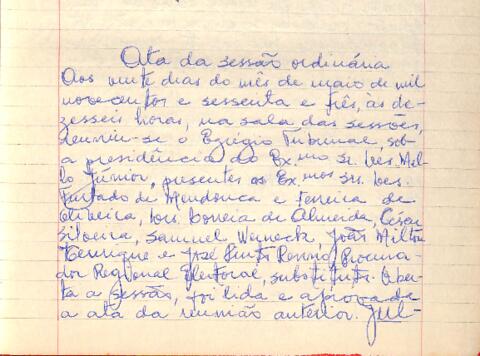 Ata da sessão ordinária
Aos vinte dias do mês de maio de mil
novecentos e sessenta e três, às de-
zesseis horas, na sala das sessões,
reuniu-se o Egrégio Tribunal, sob
a presidência do Ex.mo sr. Des. Mel-
lo Júnior, presentes os Ex.mos srs. Des.
Furtado de Mendonca e Ferreira de
Oliveira, Drs. Correia de Almeida, César
Silveira, Samuel Werneck, João Milton
Henrique e José Pinto Renno, Procura-
dor Regional Eleitoral, substituto. Aber-
ta a sessão, foi lida e aprovada
a ata da reunião anterior. Jul-